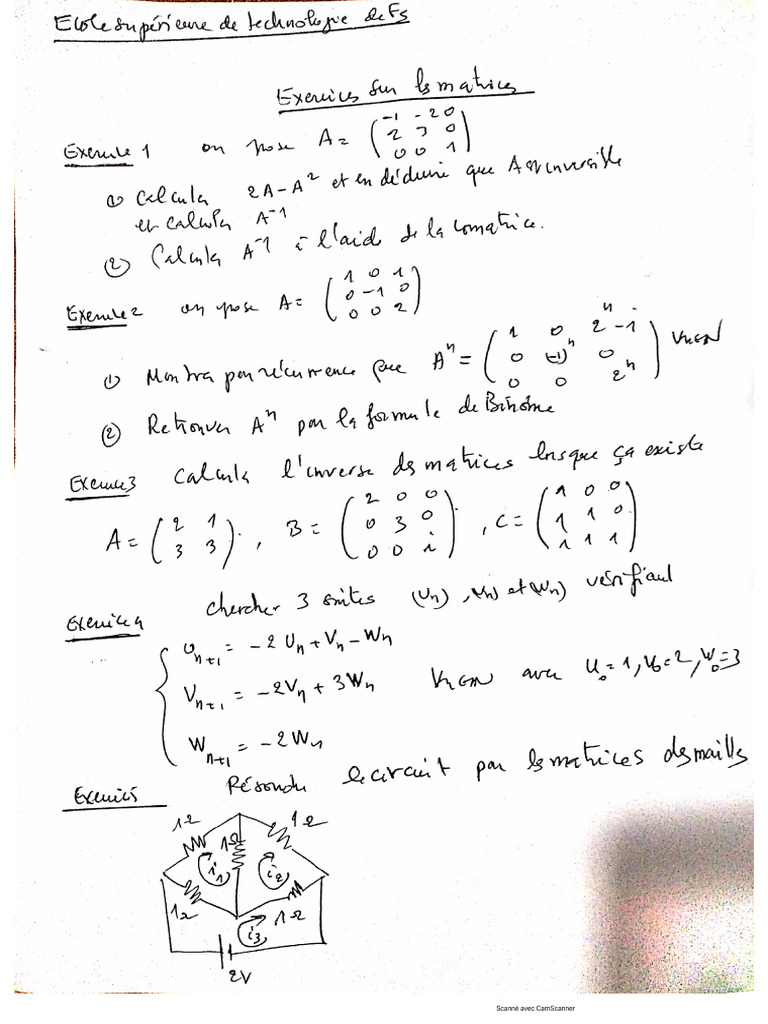 Ecole supérieure de technologie de Fs
Exercices sur les matrices
Exercice 1 on pose A = ( -1 -2 0
2 3 0
0 0 1 )
① Calculer 2A - A² et en déduire que A est inversible
et calculer A⁻¹
② Calculer A⁻¹ à l'aide de la comatrice.
Exercice 2 on pose A = ( 1 0 1
0 -1 0
0 0 2 )
① Montrer par récurrence que Aⁿ = ( 1 0 2ⁿ-1
0 (-1)ⁿ 0
0 0 2ⁿ ) ∀n∈N
② Retrouver Aⁿ par la formule de Binôme
Exercice 3 Calculer l'inverse des matrices lorsque ça existe
A = ( 2 1
3 3 ), B = ( 2 0 0
0 3 0
0 0 i ), C = ( 1 0 0
1 1 0
1 1 1 )
Exercice 4 chercher 3 suites (Un), (Vn) et (Wn) vérifiant
Un+1 = -2Un + Vn - Wn
Vn+1 = -2Vn + 3Wn ∀n∈N avec U0=1, V0=2, W0=3
Wn+1 = -2Wn
Exercice 5 Résoudre le circuit par les matrices des mailles
1Ω 1Ω 1Ω
i1 i2
1Ω 1Ω
i3
2V
Scanné avec CamScanner